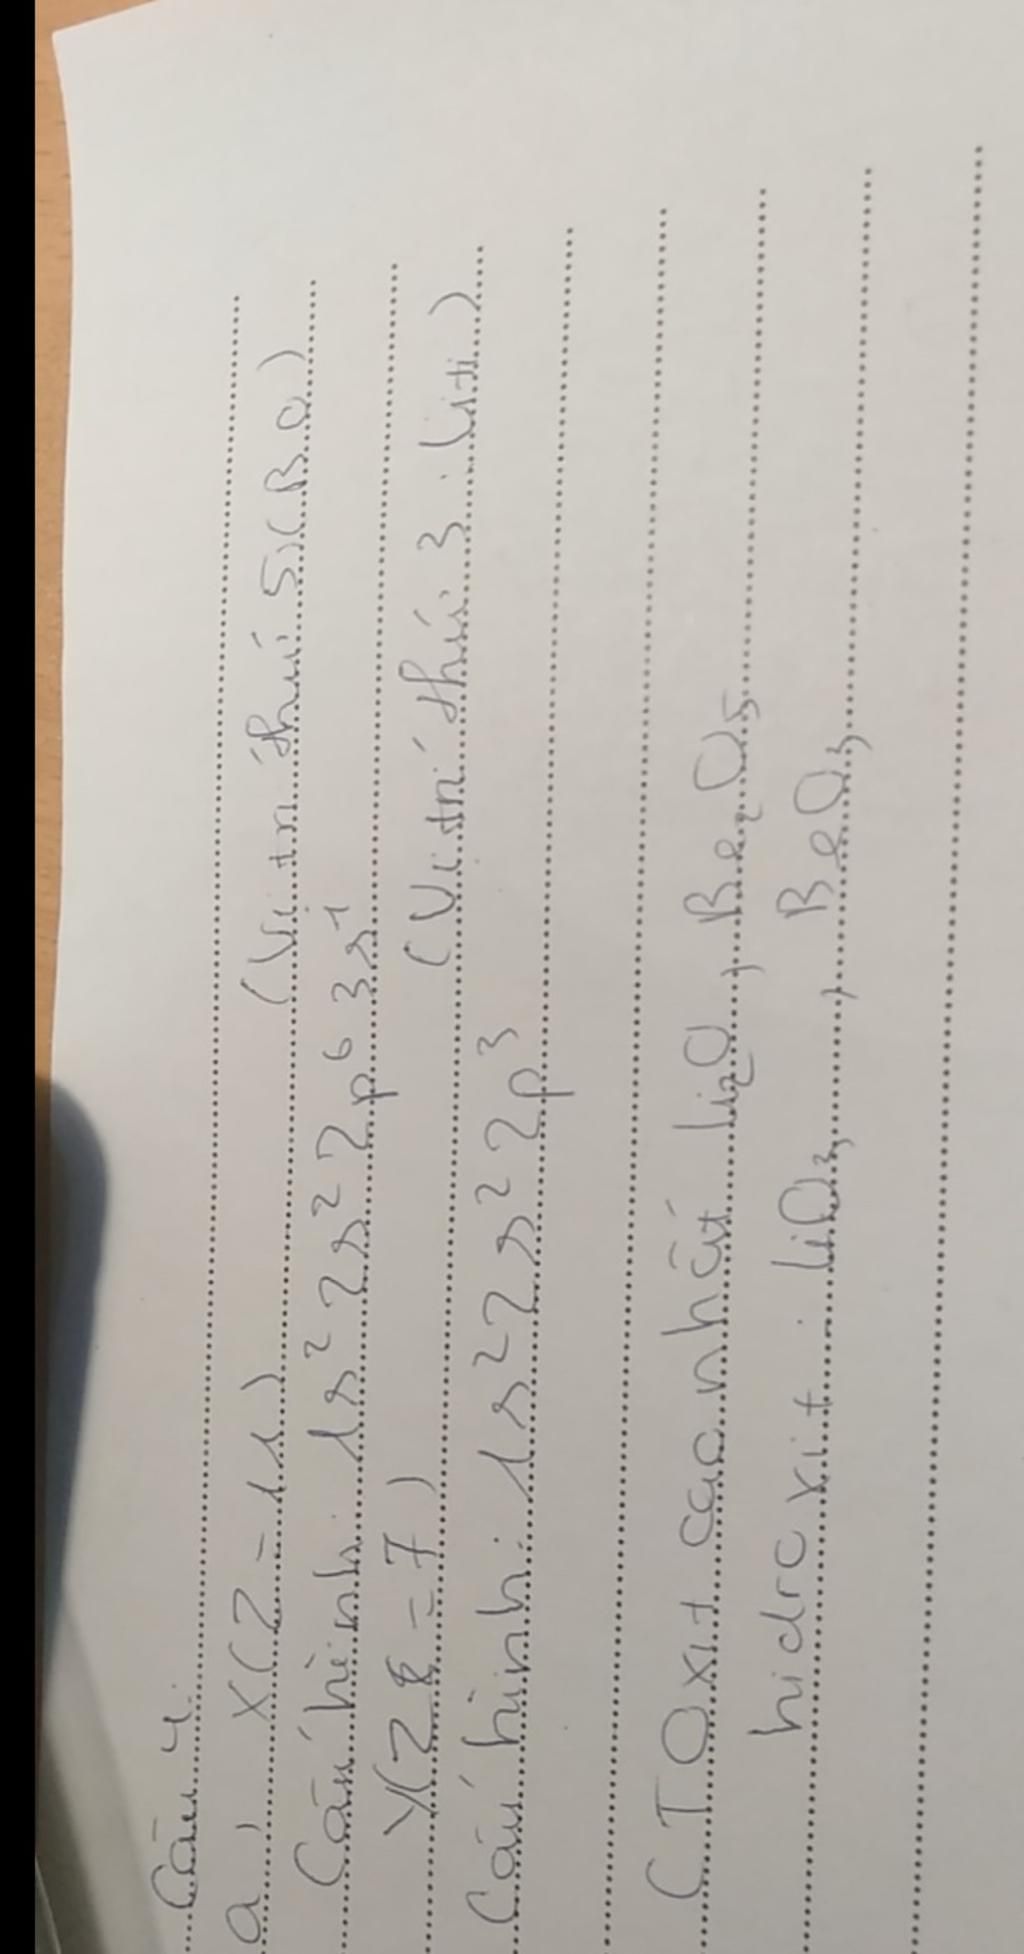 Câu 4:
a, X (Z = 11)
(Vị trí thứ 5 (Bo)
Cấu hình: 1s² 2s² 2p⁶ 3s¹
Y (Z = 7)
(Vị trí thứ 3 liti)
Cấu hình: 1s² 2s² 2p³
CT Oxit cao nhất li₂O, Be₂O₅
hidroxit: liO₃, BeO₃